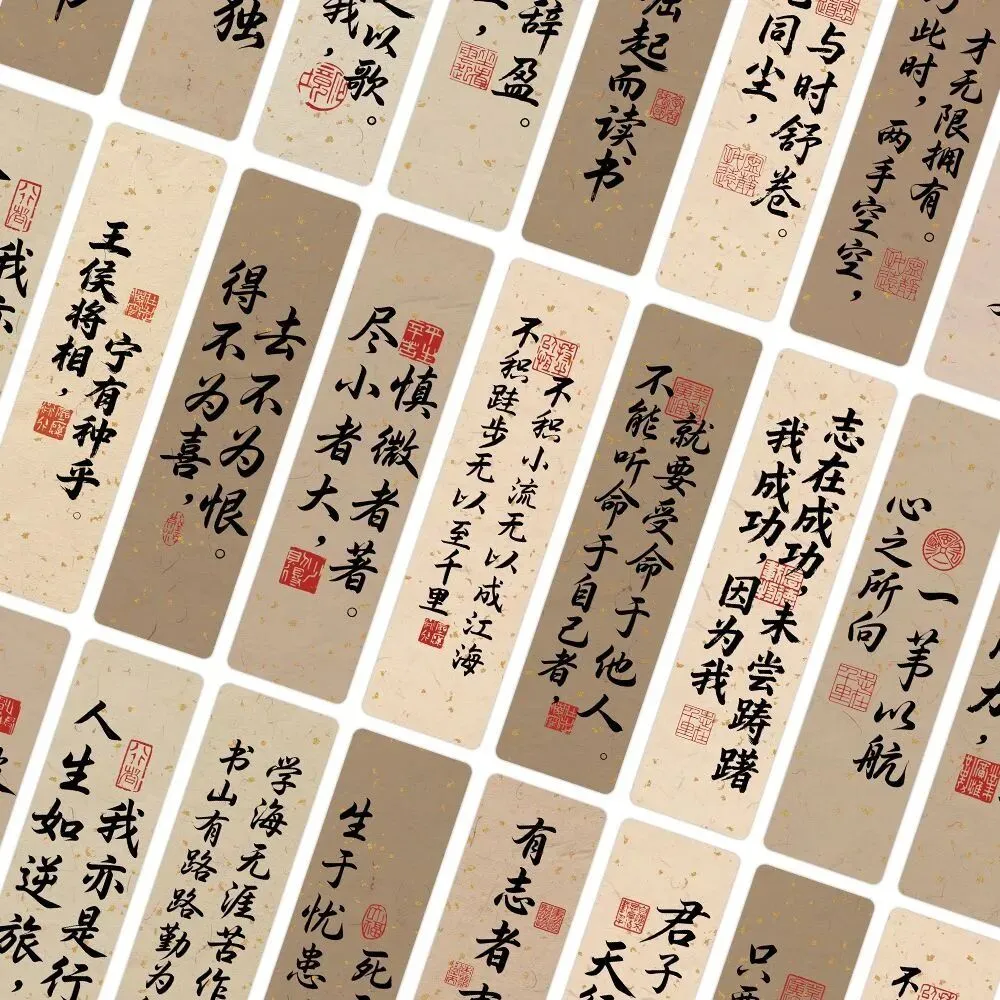 独
我，
以歌。
，
辞盈。
起而读书
同尘，
与时舒卷。
此时，两手空空，
才无限拥有。
我亦
王侯将相，
宁有种乎。
得不为喜，
去不为恨。
尽小者大，
慎微者著。
不积跬步无以至千里
不积小流无以成江海
不能听命于自己者，
就要受命于他人。
我成功，因为我
志在成功，未尝踌躇
心之所向
一苇以航
力，
人生如逆旅，
我亦是行
书山有路路勤为
学海无涯苦作
生于忧患
死
有志者
天行
君子
只要
不